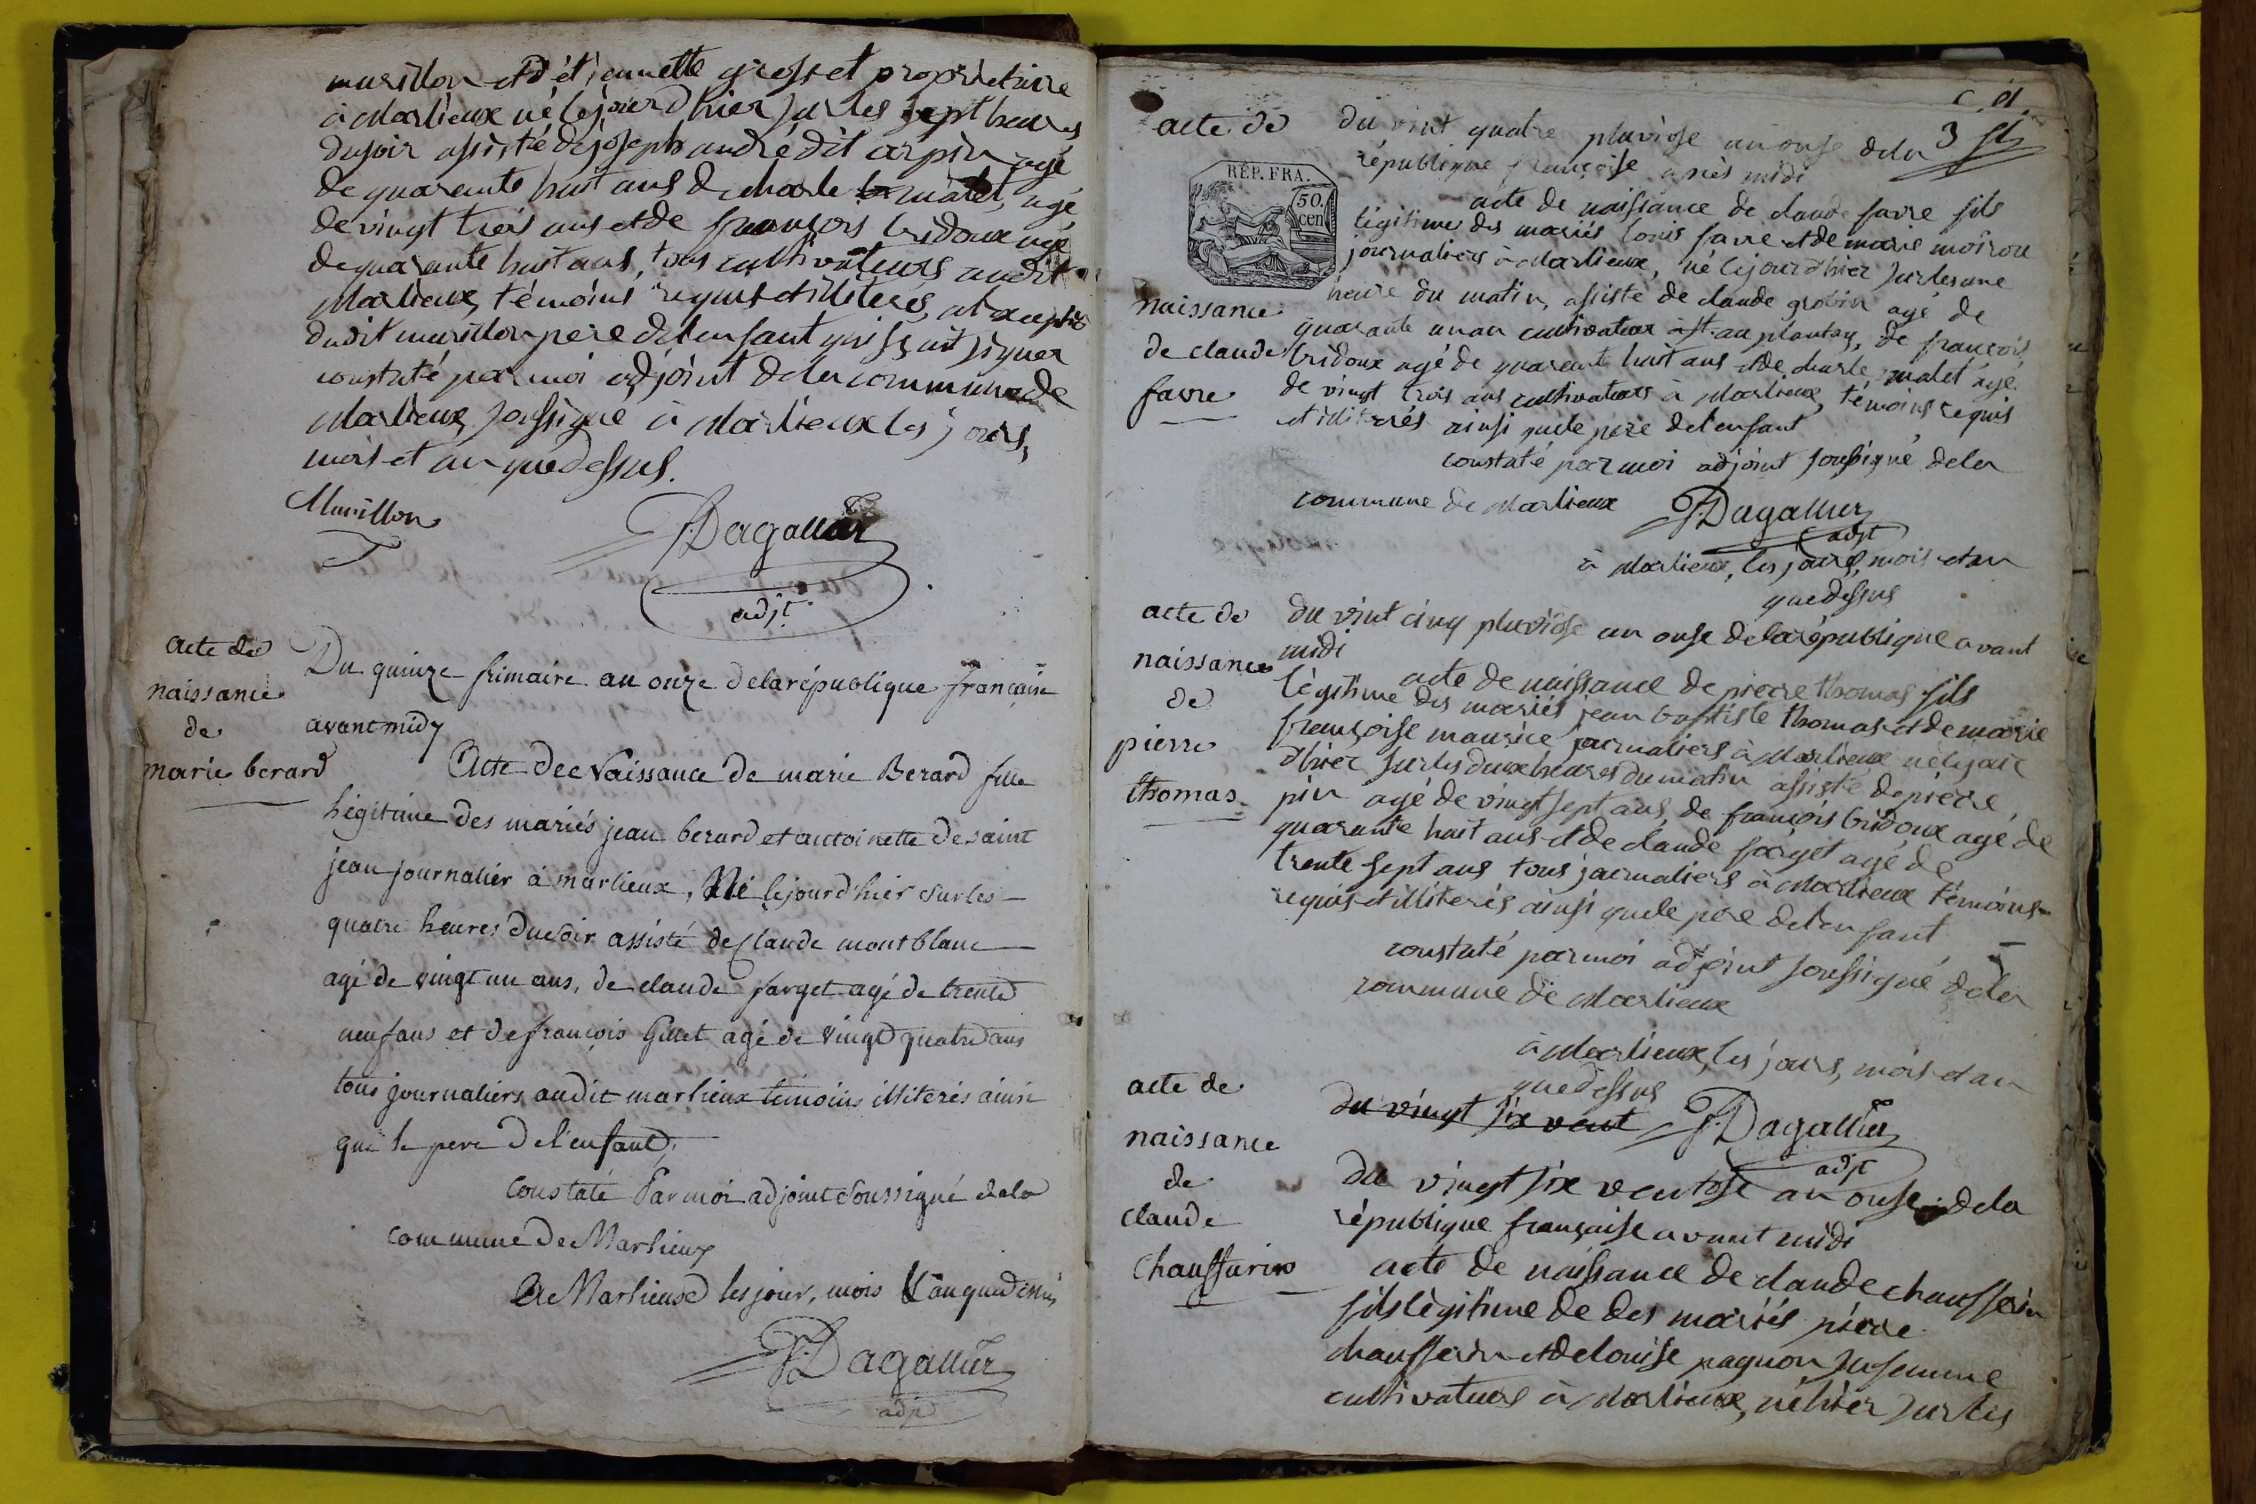 murillon et d'étiennette grosset propriétaire
à Marlieux né le jour d'hier sur les sept heures
du soir assisté de joseph andré dit carpin agé
de quarante huit ans de charle malet, agé
de vingt trois ans et de françois bridoux agé
de quarante huit ans, tous cultivateurs audit
Marlieux, témoins requis et illiterés, a l'exeption
dudit murillon pere de l'enfant qui sçait signer
constaté par moi adjoint de la commune de
Marlieux soussigné à Marlieux les jours,
mois et an que dessus.
Murillon
J. Dagallier
adjt.
acte de
naissance
de
marie berard
Du quinze frimaire an onze de la république française
avant midy
Acte de Naissance de marie Berard fille
légitime des mariés jean berard et antoinette de saint
jean journalier à marlieux, Né le jourd'hier sur les
quatre heures du soir assisté de Claude montblanc
agé de vingt un ans, de claude farget agé de trente
neuf ans et de françois Gillet agé de vingt quatre ans
tous journaliers audit marlieux témoins illiterés ainsi
que le pere de l'enfant,
Constaté Par moi adjoint soussigné de la
commune de Marlieux
A Marlieux les jour, mois & an que dessus
J. Dagallier
adjt
3 fb
acte de
RÉP. FRA.
50.
cen
naissance
de claude
favre
du vint quatre pluviose an onse de la
république françoise après midi
acte de naissance de claude favre fils
légitime des mariés louis favre et de marie moirou
journaliers à Marlieux, né le jour d'hier sur les une
heure du matin, assisté de claude grobin agé de
quarante un an cultivateur à st. au plantay, de françois
bridoux agé de quarante huit ans et de charle malet agé
de vingt trois ans cultivateurs à Marlieux, témoins requis
et illiterés ainsi que le père de l'enfant
constaté par moi adjoint soussigné de la
commune de Marlieux
J. Dagallier
adjt
à Marlieux, les jours, mois et an
que dessus
acte de
naissance
de
pierre
thomas
du vint cinq pluviose an onse de la république avant
midi
acte de naissance de pierre thomas fils
légitime des mariés jean baptiste thomas et de marie
françoise maurice journaliers à Marlieux né le jour
d'hier sur les deux heures du matin assisté de pierre
pin agé de vingt sept ans, de françois bridoux agé de
quarante huit ans et de claude farget agé de
trente sept ans tous journaliers à Marlieux témoins
requis et illiterés ainsi que le pere de l'enfant
constaté par moi adjoint soussigné de la
commune de Marlieux
à Marlieux, les jours, mois et an
que dessus
du vingt six vent
J. Dagallier
adjt
acte de
naissance
de
claude
chausserin
du vingt six ventose an onse de la
république française avant midi
acte de naissance de claude chausserin
fils légitime de des mariés pierre
chausserin et de louise pagnon sa femme
cultivateurs à Marlieux, né hier sur les